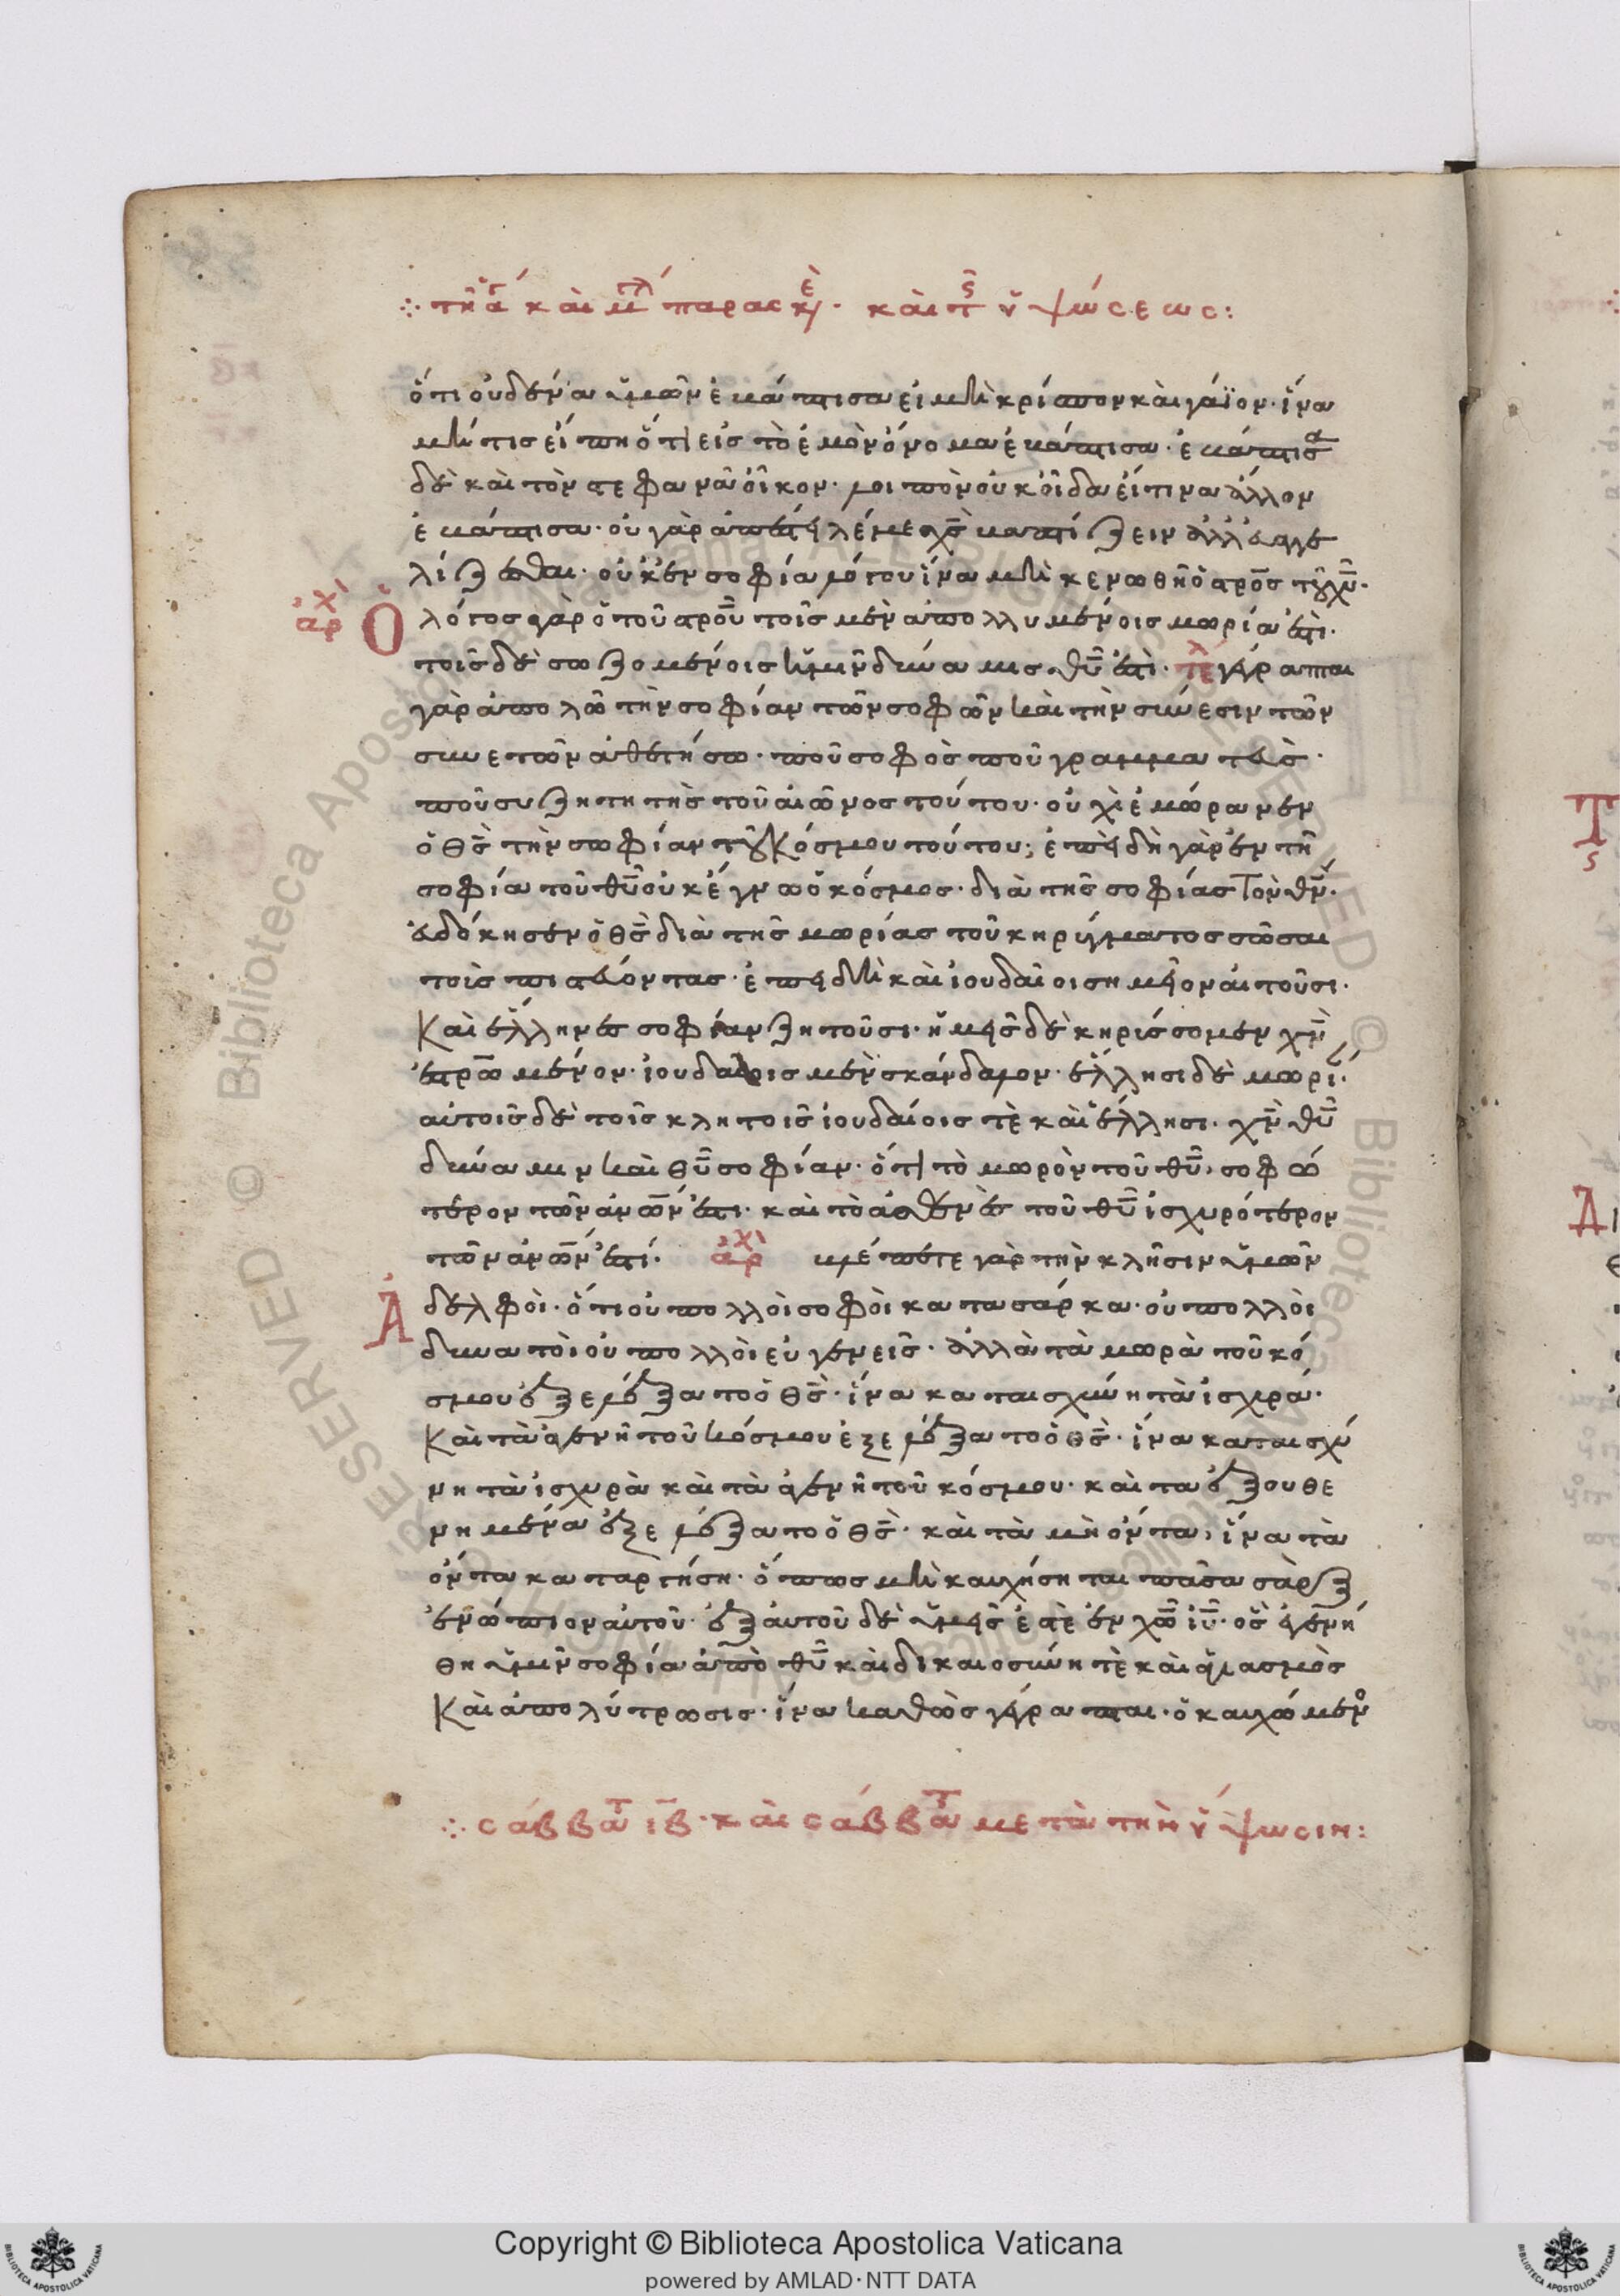 ∴ τῆ α καὶ μ παρασκ. καὶ τ ὑψώσεως:
ὅτι οὐδένα ὑμῶν ἐβάπτισα εἰ μὴ κρίσπον καὶ γάϊον· ἵνα
μή τις εἴπη ὅτι εἰς τὸ ἐμὸν ὄνομα ἐβάπτισα· ἐβάπτισα
δὲ καὶ τὸν στεφανᾶ οἶκον· λοιπὸν οὐκ οἶδα εἴ τινα ἄλλον
ἐβάπτισα· οὐ γὰρ ἀπέστειλέ με χς βαπτίζειν ἀλλ' εὐαγγε
λίζεσθαι· οὐκ ἐν σοφία λόγου ἵνα μὴ κενωθῆ ὁ στρος τοῦ χυ·
ἀρχ Ὁ λόγος γὰρ ὁ τοῦ στρου τοῖς μὲν ἀπολλυμένοις μωρία ἐστι·
τοῖς δὲ σωζομένοις ἡμῖν δύναμις θυ ἐστὶ· τε γέγραπται
γὰρ ἀπολῶ τὴν σοφίαν τῶν σοφῶν καὶ τὴν σύνεσιν τῶν
συνετῶν ἀθετήσω· ποῦ σοφὸς ποῦ γραμματεὺς·
ποῦ συζητητὴς τοῦ αἰῶνος τούτου· οὐχὶ ἐμώρανεν
ὁ θς τὴν σωφίαν τοῦ κόσμου τούτου; ἐπειδὴ γὰρ ἐν τῆ
σοφία τοῦ θυ οὐκ ἔγνω ὁ κόσμος· διὰ τῆς σοφίας τὸν θν·
εὐδόκησεν ὁ θς διὰ τῆς μωρίας τοῦ κηρύγματος σῶσαι
τοὶς πιστεύοντας· ἐπειδὴ καὶ ἰουδαῖοι σημεῖον αἰτοῦσι·
Καὶ ἕλληνες σοφίαν ζητοῦσι· ἡμεῖς δὲ κηρίσσομεν χν
ἐστρωμένον· ἰουδαίοις μὲν σκάνδαλον· ἕλλησι δὲ μωρί·
αὐτοῖς δὲ τοῖς κλητοῖς ἰουδαίοις τὲ καὶ ἕλλησι· χν θυ
δύναμιν καὶ θυ σοφίαν· ὅτι τὸ μωρὸν τοῦ θυ, σοφώ
τερον τῶν ἀνων ἐστι· καὶ τὸ ἀσθενὲς τοῦ θυ ἰσχυρότερον
τῶν ἀνων ἐστί. ἀρχ βλέπετε γὰρ τὴν κλῆσιν ὑμῶν
Ἀ δελφοὶ· ὅτι οὐ πολλοὶ σοφοὶ κατα σάρκα· οὐ πολλοὶ
δυνατοὶ οὐ πολλοὶ εὐγενεῖς· ἀλλὰ τὰ μωρὰ τοῦ κό
σμου ἐξελέξατο ὁ θς· ἵνα καταισχύνη τὰ ἰσχιρά·
Καὶ τὰ ἀγενῆ τοῦ κόσμου ἐξελέξατο ὁ θς· ἵνα καταισχύ
νη τὰ ἰσχυρὰ καὶ τὰ ἀγενῆ τοῦ κόσμου· καὶ τα ἐξουθε
νημένα ἐξελέξατο ὁ θς· καὶ τὰ μὴ ὄντα, ἵνα τὰ
ὄντα καταργήση· ὅπως μὴ καυχήσηται πᾶσα σὰρξ
ἐνώπιον αὐτοῦ· ἐξ αὐτοῦ δὲ ὑμεῖς ἐστὲ ἐν χω ιυ· ὃς ἐγενή
θη ὑμῖν σοφία ἀπὸ θυ καὶ δικαιοσύνη τὲ καὶ ἁγιασμὸς
Καὶ ἀπολύτρωσις· ἵνα καθὼς γέγραπται· ὁ καυχώμενο
∴ σάββατ ιβ· καὶ σάββατ μετὰ τὴν ὕψωσιν: